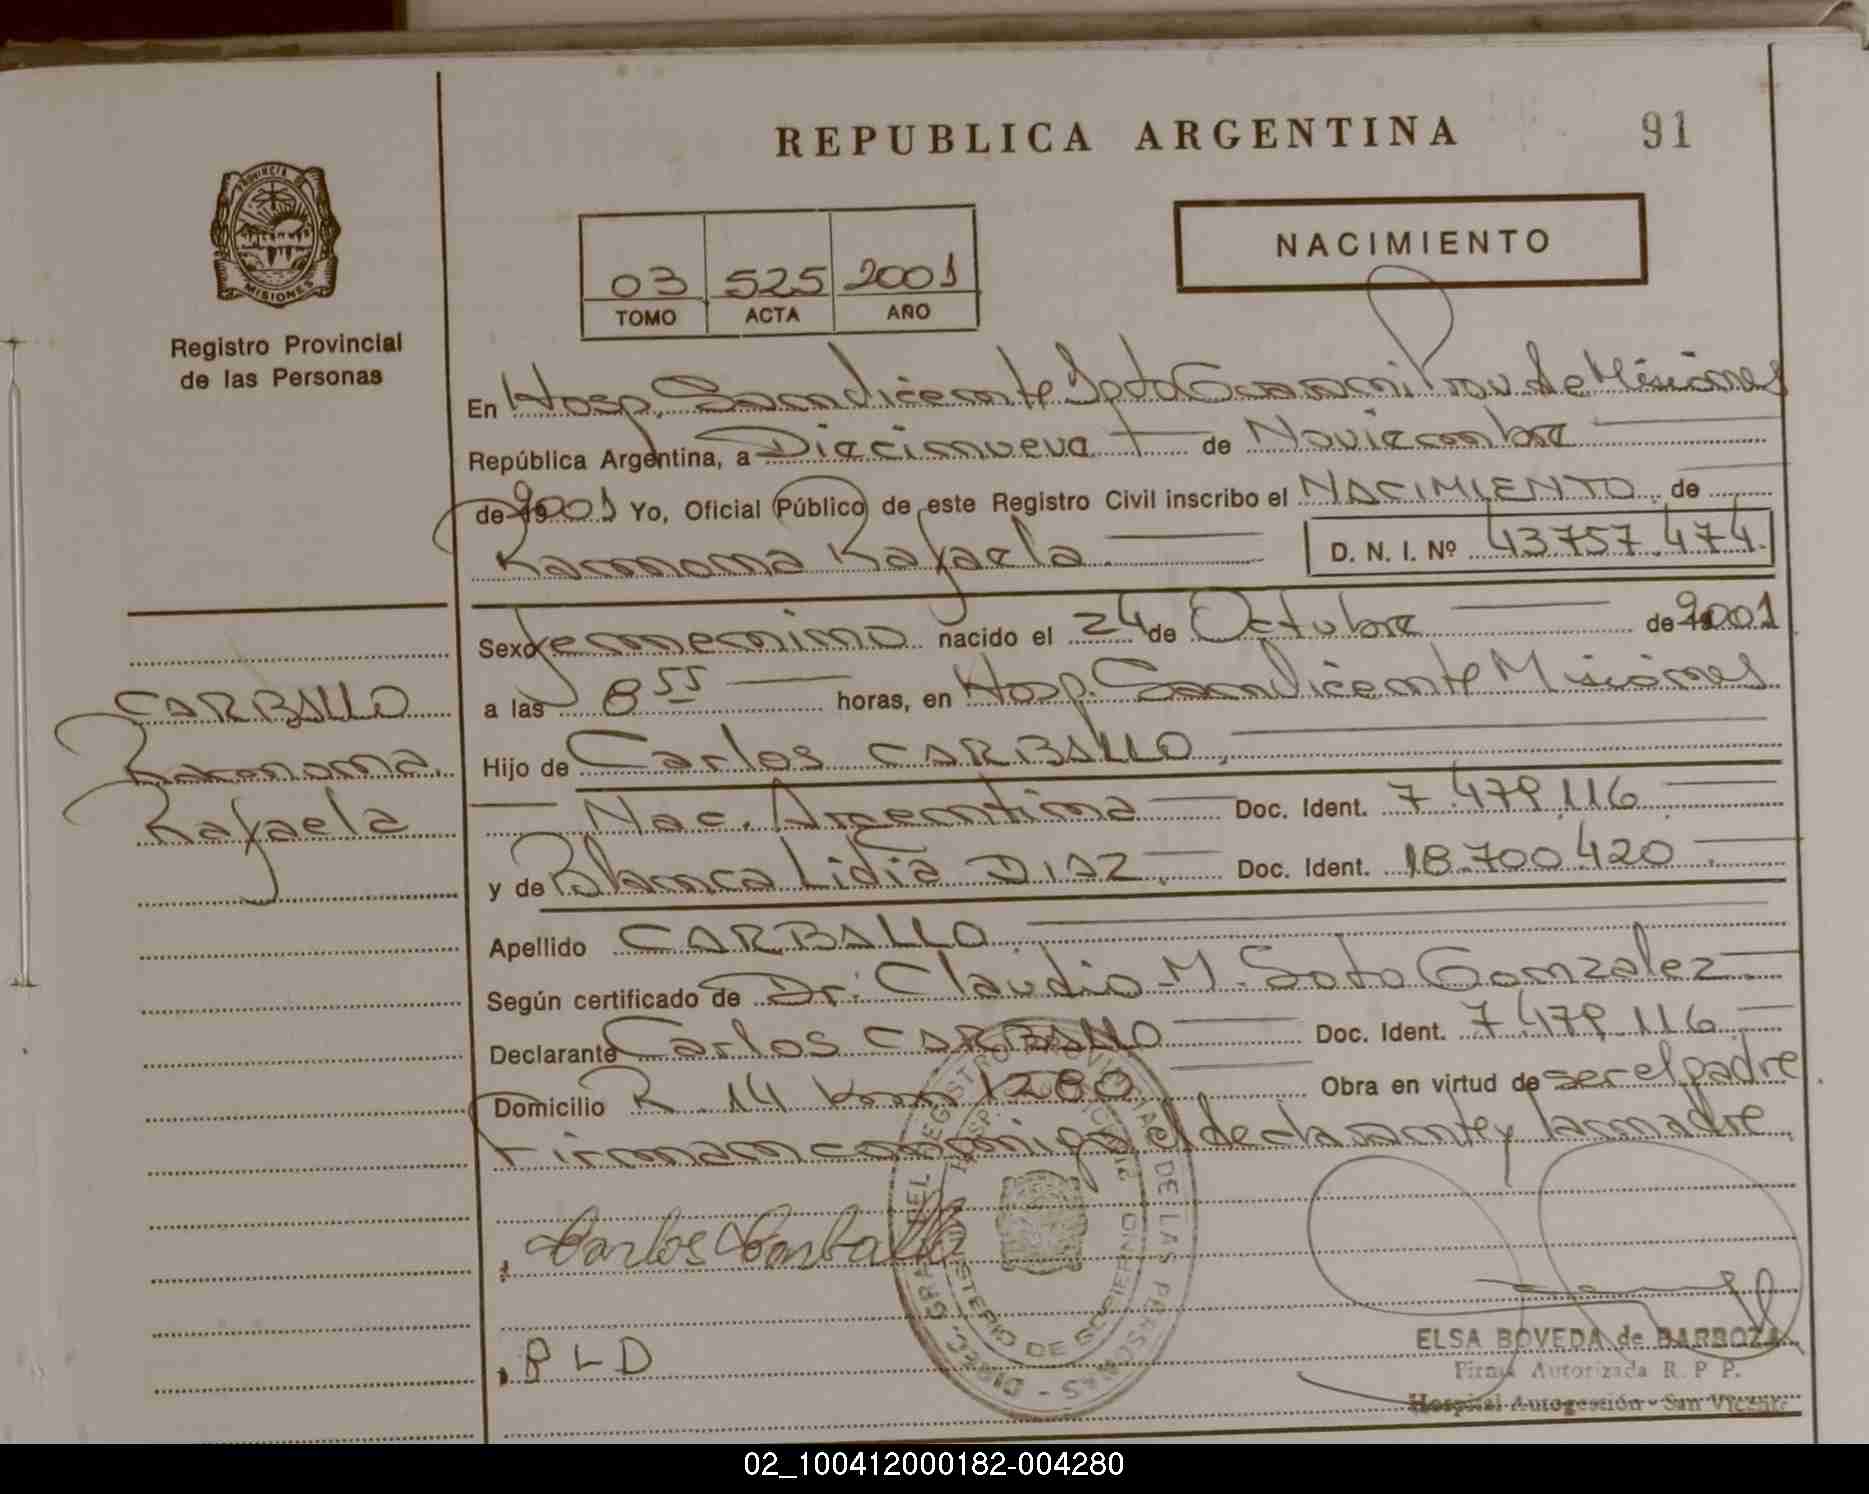 REPUBLICA ARGENTINA
91
PROVINCIA DE
MISIONES
Registro Provincial
de las Personas
03 525 2001
TOMO ACTA AÑO
NACIMIENTO
En Hosp. San Vicente Dpto Guarani Prov. de Misiones
República Argentina, a Diecinueve de Noviembre
de 2001 Yo, Oficial Público de este Registro Civil inscribo el NACIMIENTO de
Ramona Rafaela D. N. I. Nº 43757.474.
Sexo femenino nacido el 24 de Octubre de 2001
a las 8 55 horas, en Hosp. San Vicente Misiones
Hijo de Carlos CARBALLO,
Nac. Argentina Doc. Ident. 7.479.116
y de Blanca Lidia DIAZ. Doc. Ident. 18.700.420
Apellido CARBALLO
Según certificado de Dr. Claudio M. Soto Gonzalez
Declarante Carlos CARBALLO Doc. Ident. 7.479.116
Domicilio R. 14 km 1280 Obra en virtud de ser el padre
Firman conmigo el declarante y la madre.
CARBALLO
Ramona
Rafaela
Carlos Carballo
B L D
DIREC. GRAL. DEL REGISTRO PROVINCIAL DE LAS PERSONAS
MINISTERIO DE GOBIERNO
ELSA BOVEDA de BARBOZA
Firma Autorizada R. P. P.
Hospital Autogestión - San Vicente
02_100412000182-004280